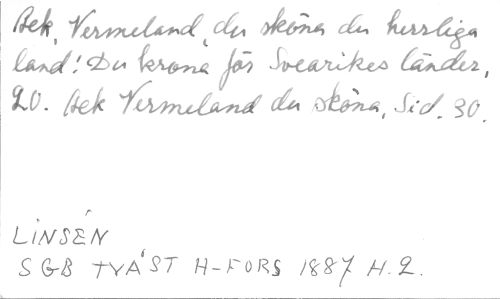 Ack, Vermeland, du sköna du herrliga
land! Du krona för Svearikes länder,
20. Ack Vermeland du sköna, Sid. 30.
LINSÉN
SGB TVÅST H-FORS 1887 H.2.